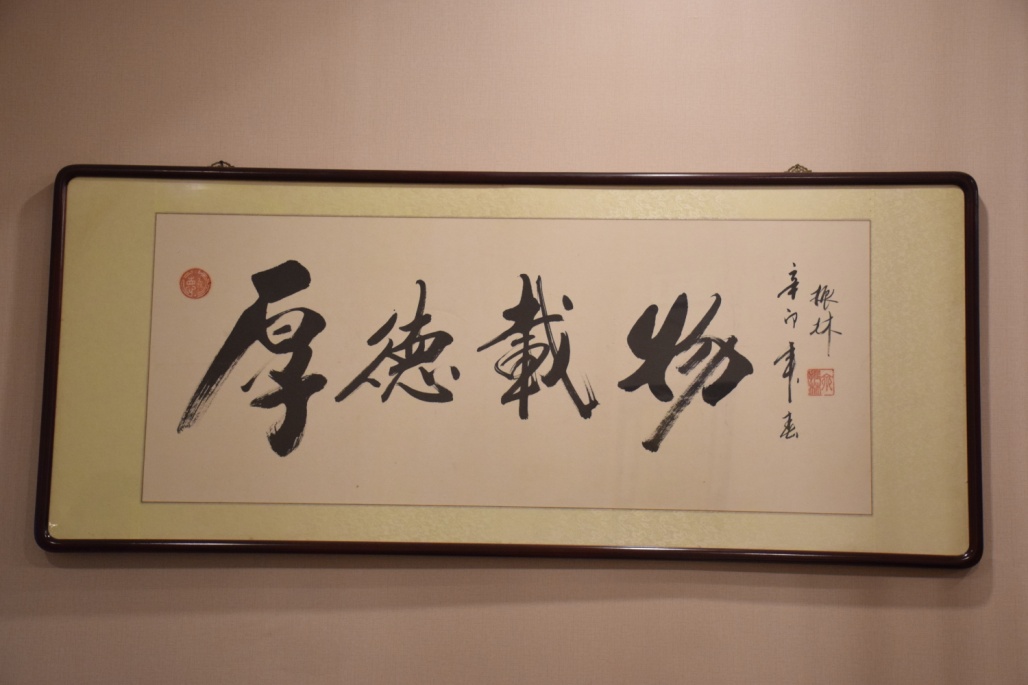 厚德載物
辛卯年春
振林